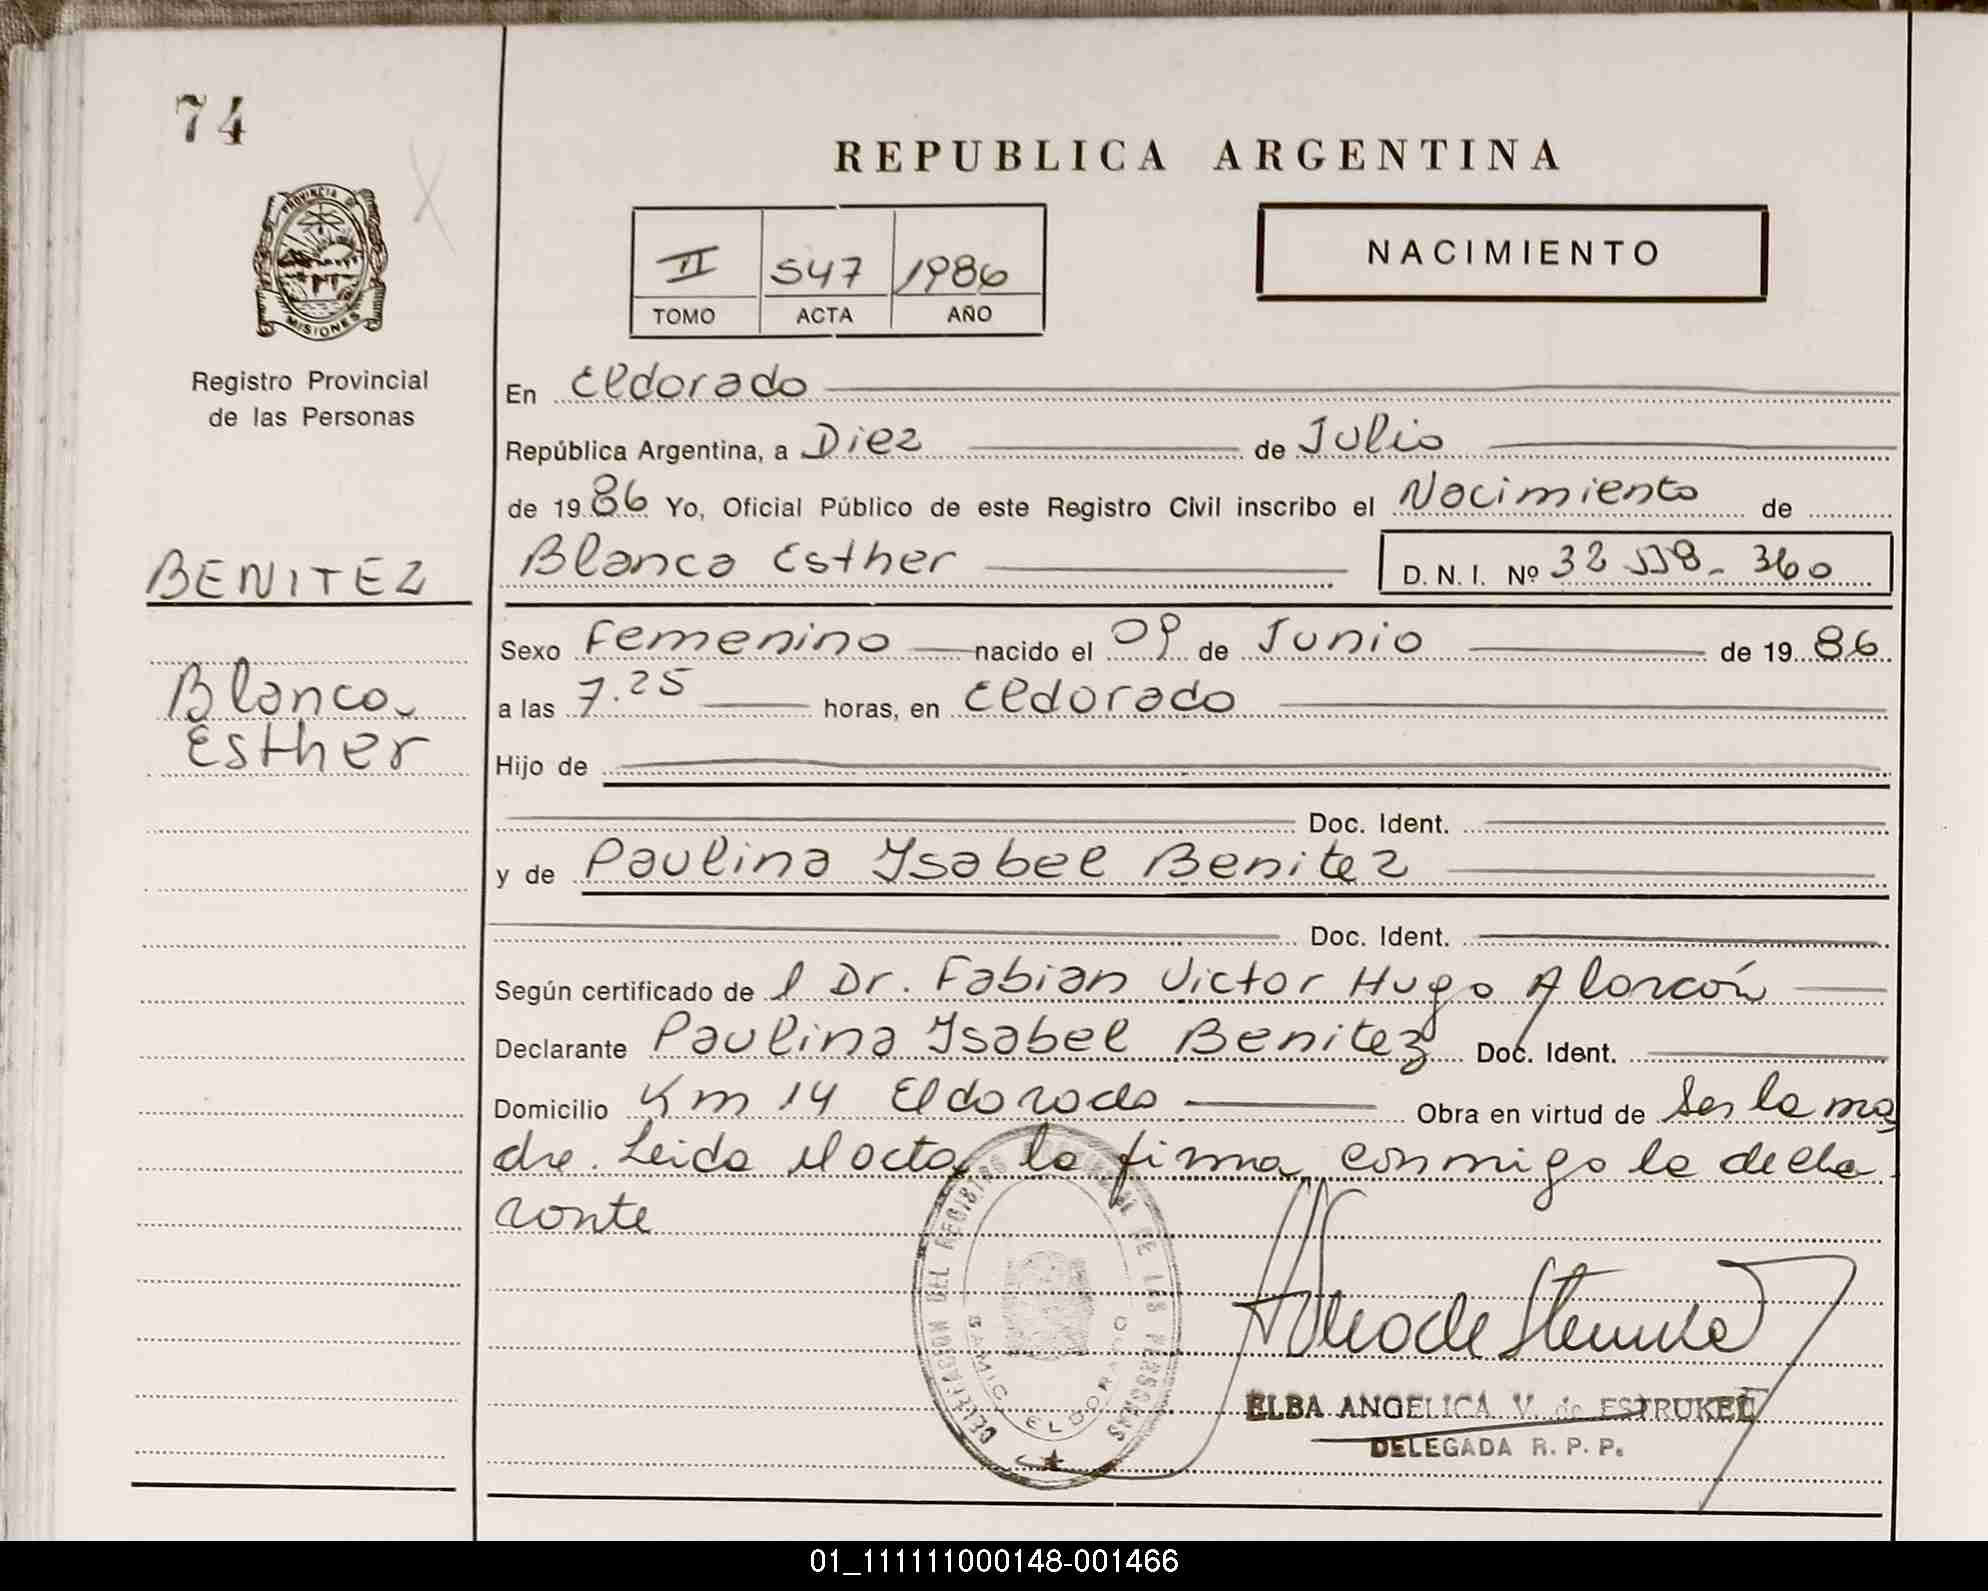 74
PROVINCIA DE
MISIONES
Registro Provincial
de las Personas
BENITEZ
Blanca
Esther
REPUBLICA ARGENTINA
NACIMIENTO
II 547 1986
TOMO ACTA AÑO
En Eldorado
República Argentina, a Diez de Julio
de 1986 Yo, Oficial Público de este Registro Civil inscribo el Nacimiento de
Blanca Esther D. N. I. Nº 32 538-360
Sexo Femenino nacido el 09 de Junio de 1986
a las 7.25 horas, en Eldorado
Hijo de
Doc. Ident.
y de Paulina Ysabel Benitez
Doc. Ident.
Según certificado de l Dr. Fabian Victor Hugo Alarcón
Declarante Paulina Ysabel Benitez Doc. Ident.
Domicilio Km 14 Eldorado Obra en virtud de Ser la ma
dre. Leida el acta, la firma conmigo la decla
rante
DELEGACION DEL REGISTRO PROVINCIAL DE LAS PERSONAS
SAMIC ELDORADO
ELBA ANGELICA V. de ESTRUKEL
DELEGADA R. P. P.
01_111111000148-001466